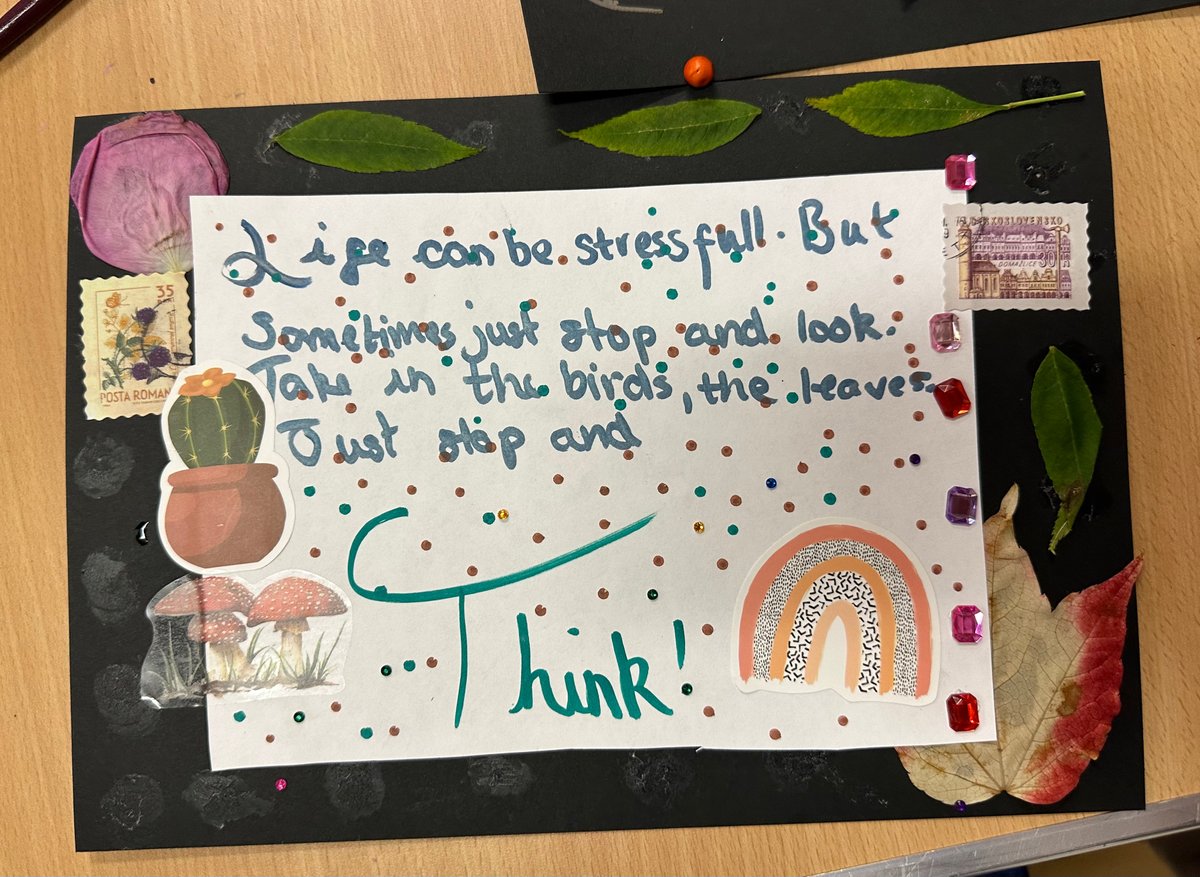 Life can be stressfull. But
Sometimes just stop and look.
Take in the birds, the leaves.
Just stop and
Think!
35
POSTA ROMAN
ESKOSLOVENSKO
DOMAŽLICE
30